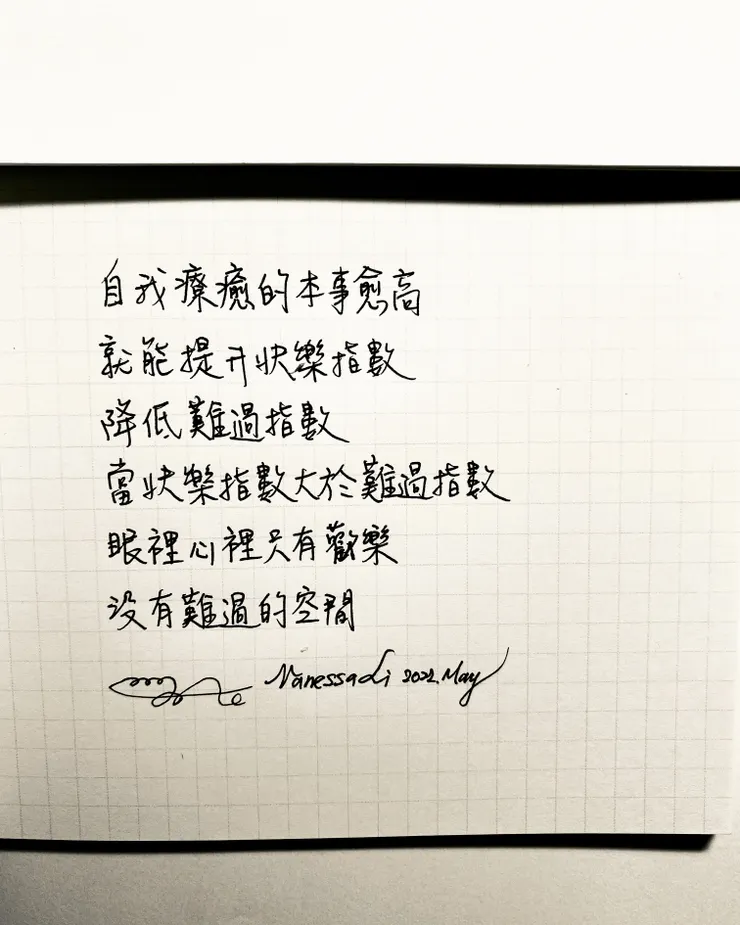 自我療癒的本事愈高
就能提升快樂指數
降低難過指數
當快樂指數大於難過指數
眼裡心裡只有歡樂
沒有難過的空間
VanessaLi 2022.May